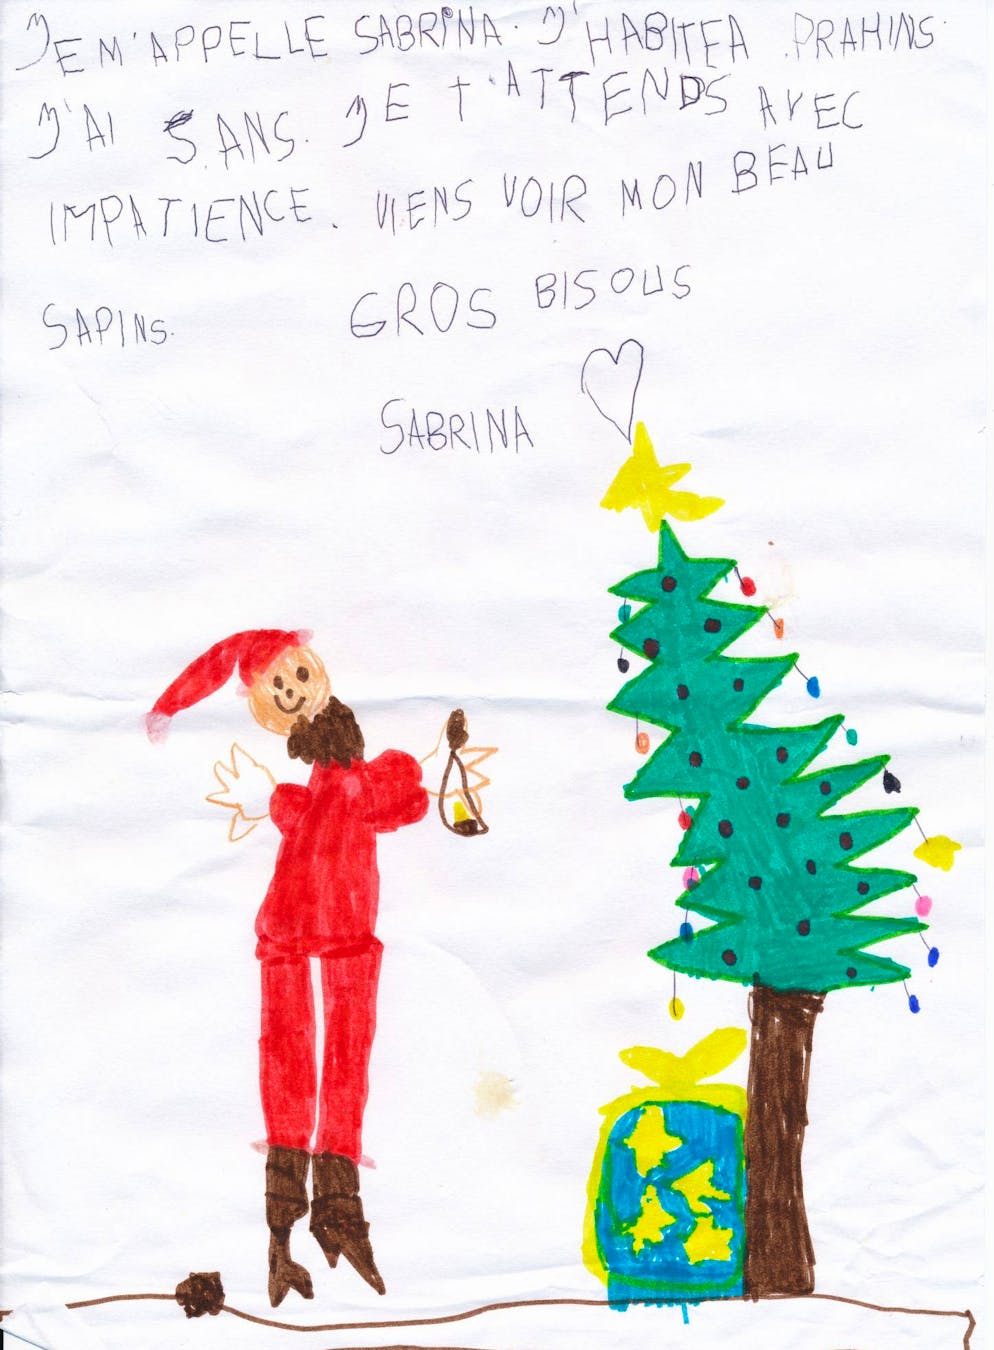 JE M'APPELLE SABRINA. J'HABITE A PRAHINS.
J'AI 5 ANS. JE T'ATTENDS AVEC
IMPATIENCE. VIENS VOIR MON BEAU
SAPINS. GROS BISOUS
SABRINA